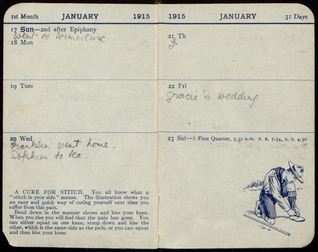 1st Month JANUARY 1915
17 Sun—2nd after Epiphany
Went to
18 Mon
19 Tues
20 Wed
Franklin went home.
Sophies to tea
A CURE FOR STITCH. You all know what a
"stitch in your side" means. The illustration shows you
an easy and quick way of curing yourself next time you
suffer from this pain.
Bend down in the manner shown and kiss your knee.
When you rise you will find that the pain has gone. You
can either squat on one knee, stoop down, and kiss the
other, which is the same side as the pain, or you can squat
and then kiss your knee.
1915 JANUARY 31 Days
21 Th
22 Fri
Gracie's wedding
23 Sat— ☽ First Quarter, 5.32 a.m. S. R. 7.54, S. S. 4.30